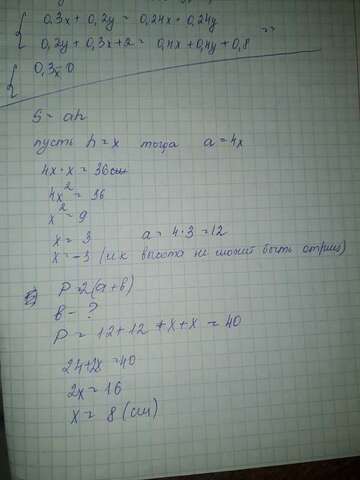 0,3x + 0,2y = 0,24x + 0,24y
0,2y + 0,3x + 2 = 0,4x + 0,4y + 0,8
0,3x - 0
S = ah
пусть h = x тогда a = 4x
4x·x = 36 см
4x² = 36
x² = 9
x = 3 a = 4·3 = 12
x = -3 (т.к высота не может быть отриц)
P = 2(a+b)
b - ?
P = 12 + 12 + x + x = 40
24 + 2x = 40
2x = 16
x = 8 (см)